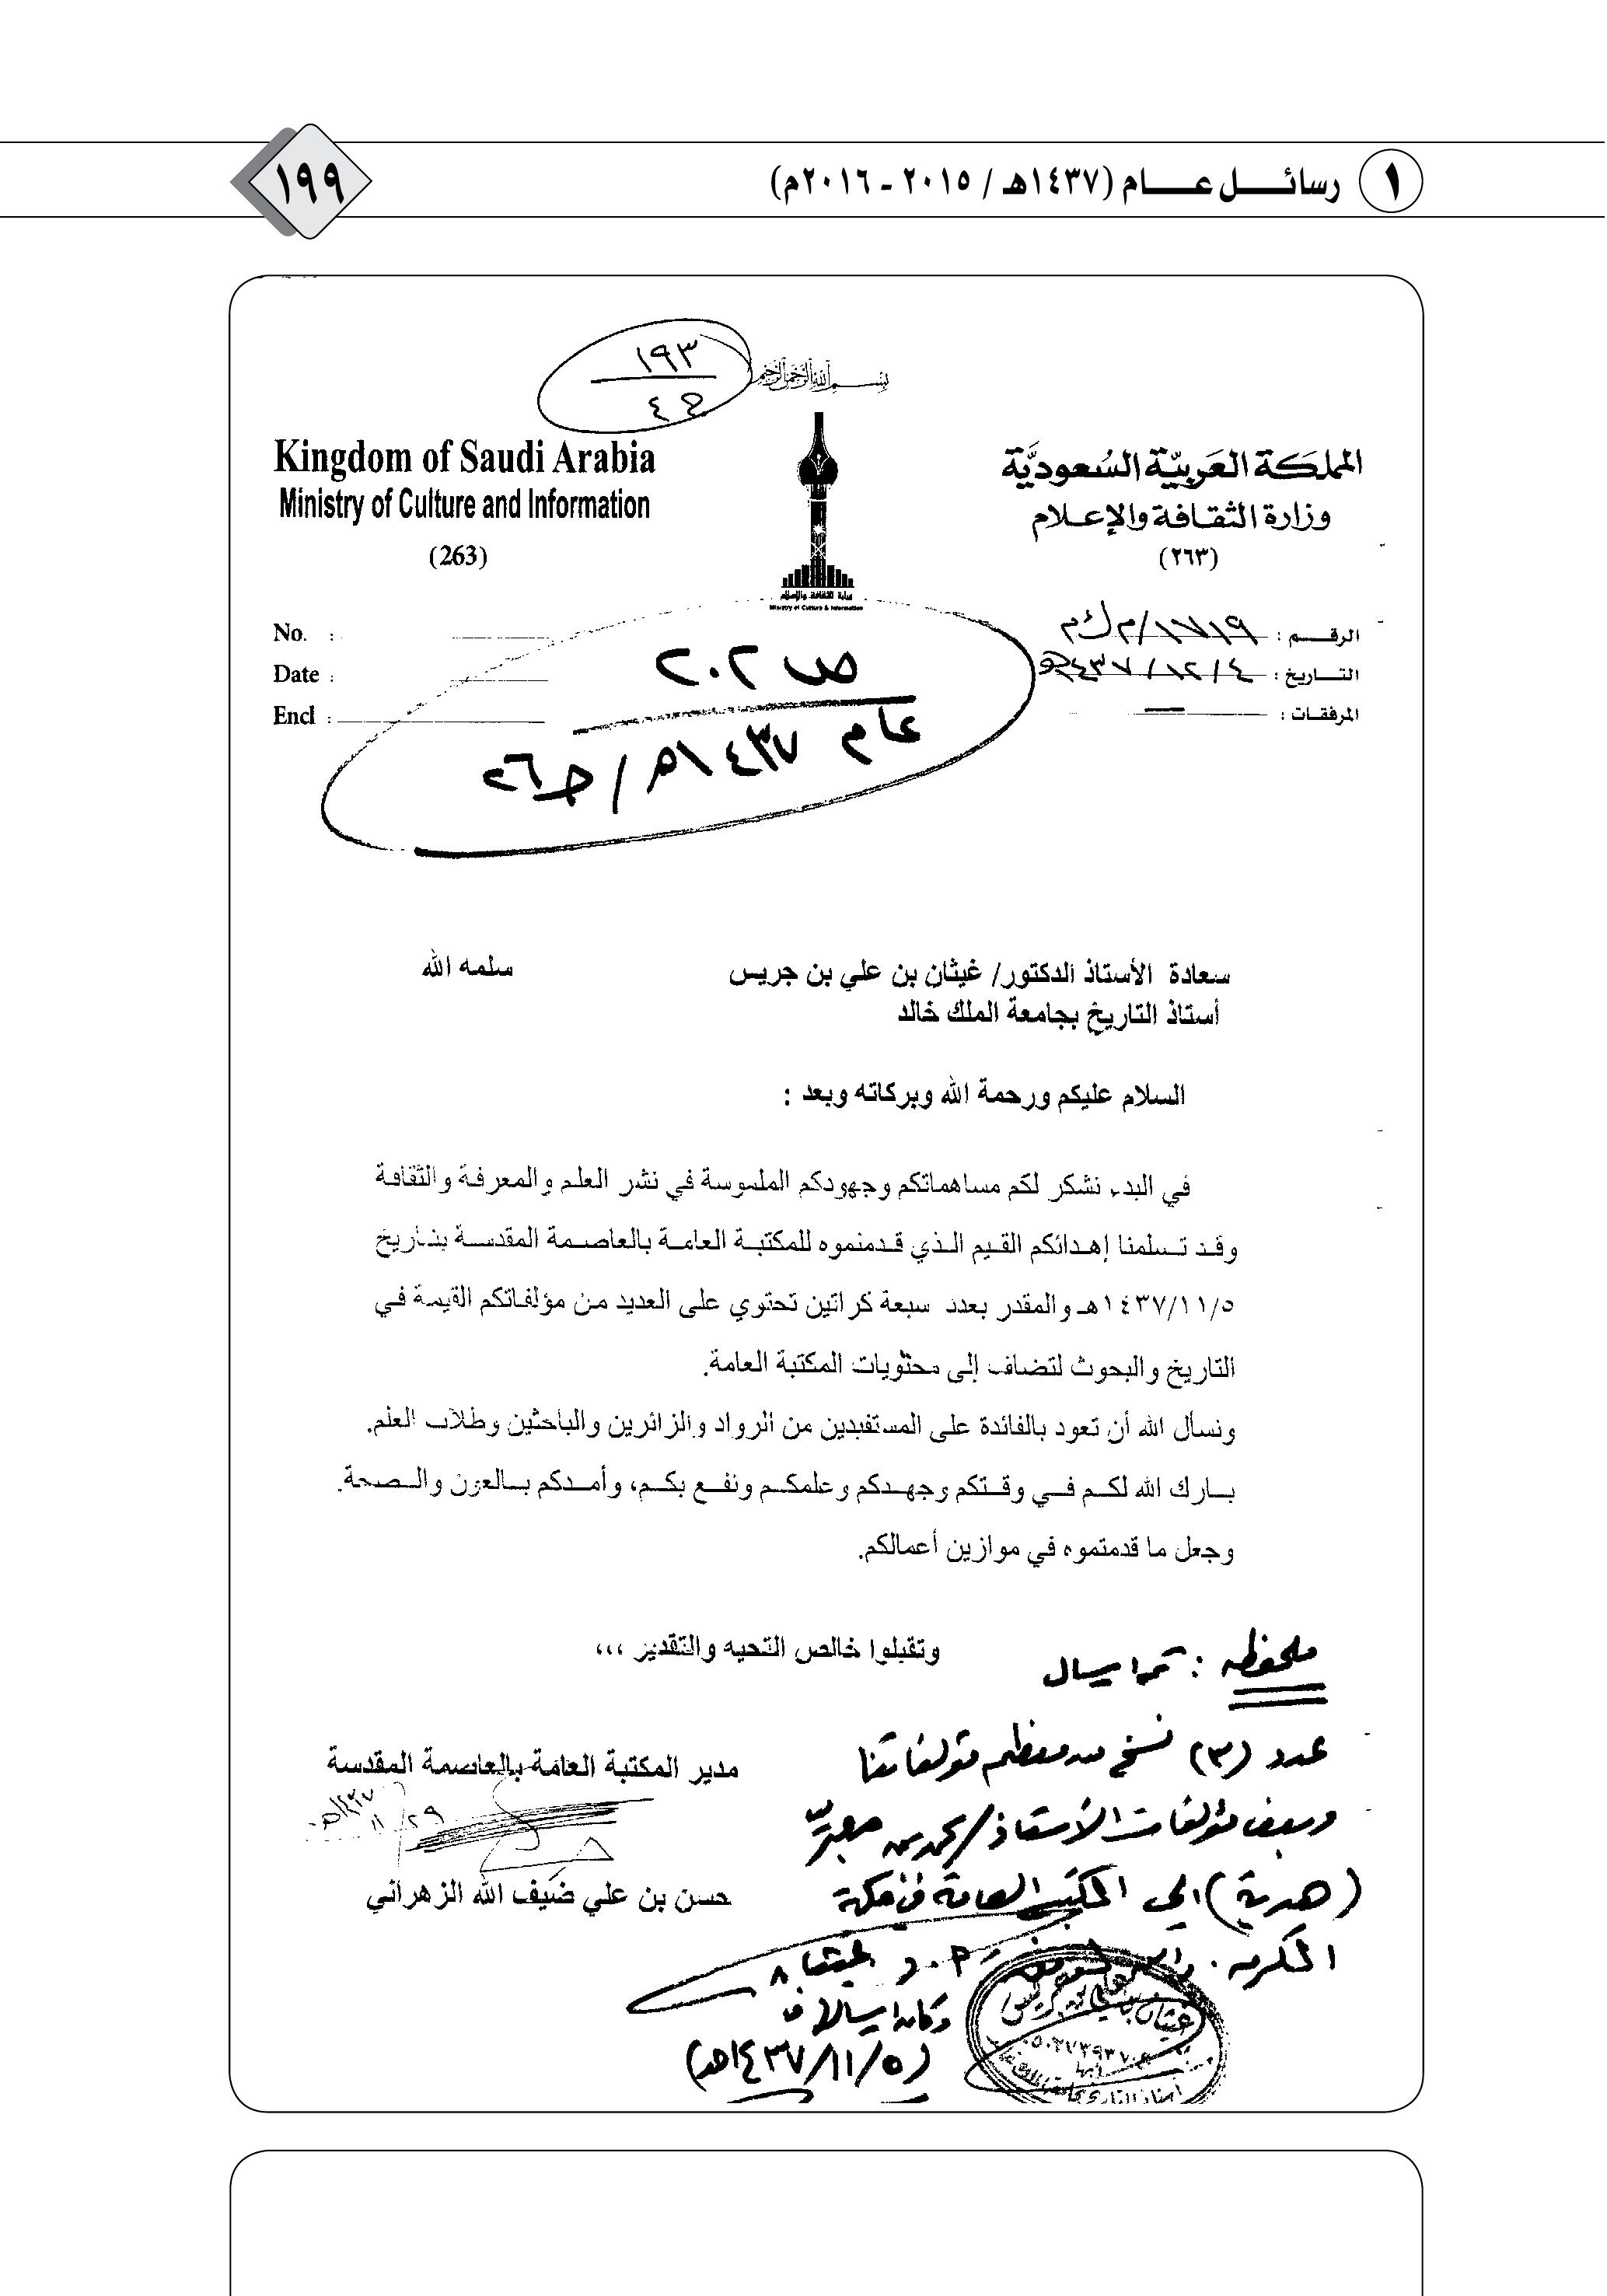 ١ رسائل عام (١٤٣٧هـ / ٢٠١٥ - ٢٠١٦م)
١٩٩
١٩٣
بسم الله الرحمن الرحيم
Kingdom of Saudi Arabia
Ministry of Culture and Information
(263)
المملكة العربية السعودية
وزارة الثقافة والإعلام
(٢٦٣)
وزارة الثقافة والإعلام
Ministry of Culture & Information
No. :
Date :
Encl :
الرقم : ١٧١٩/م ك م
التاريخ : ٤ / ١٢ / ١٤٣٧هـ
المرفقات : ـــ
ص ٢٠٢
عام ١٤٣٧هـ / ج٢٦
سعادة الأستاذ الدكتور/ غيثان بن علي بن جريس سلمه الله
أستاذ التاريخ بجامعة الملك خالد
السلام عليكم ورحمة الله وبركاته وبعد :
في البدء نشكر لكم مساهماتكم وجهودكم الملموسة في نشر العلم والمعرفة والثقافة
وقد تسلمنا إهدائكم القيم الذي قدمتموه للمكتبة العامة بالعاصمة المقدسة بتاريخ
١٤٣٧/١١/٥هـ والمقدر بعدد سبعة كراتين تحتوي على العديد من مؤلفاتكم القيمة في
التاريخ والبحوث لتضاف إلى محتويات المكتبة العامة.
ونسأل الله أن تعود بالفائدة على المستفيدين من الرواد والزائرين والباحثين وطلاب العلم.
بارك الله لكم في وقتكم وجهدكم وعلمكم ونفع بكم، وأمدكم بالعون والصحة.
وجعل ما قدمتموه في موازين أعمالكم.
وتقبلوا خالص التحيه والتقدير ،،،
مدير المكتبة العامة بالعاصمة المقدسة
٢٩/١١/١٤٣٧هـ
حسن بن علي ضيف الله الزهراني
ملحوظه : تم ارسال
عدد (٣) نسخ من معظم مؤلفاتنا
وبعض مؤلفات الأستاذ/ محمد بن معبر
(هدية) الى المكتبة العامة في مكة
المكرمه .
وكان ارسالها في
(٥/ ١١/ ١٤٣٧هـ)
غيثان بن علي بن جريس
أبها